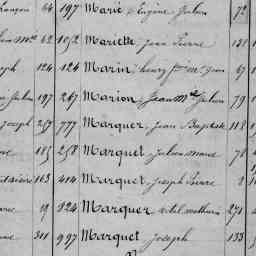 françois 44 197 Marié Eugène Julien 72
62 1052 Mariette Jean Pierre 131
Joseph 124 124 Marin henry 67
Julien 197 267 Marion Jean Me Julien 79
Joseph 257 777 Marquer Jean Baptiste 118
185 258 Marquet Julien marie 78
163 414 Marquet Joseph Pierre 2
19 924 Marquer vital mathurin 271
311 997 Marquet Joseph 133